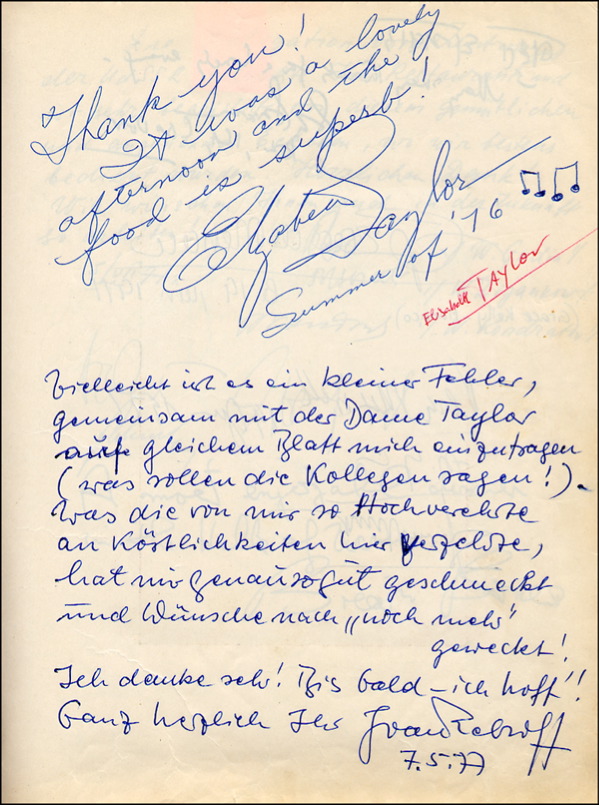 Thank you!
It was a lovely
afternoon and the
food is superb!
Elizabeth Taylor
Summer of '76
Elisabeth TAYLOR
Vielleicht ist es ein kleiner Fehler,
gemeinsam mit der Dame Taylor
auf gleichem Blatt mich einzutragen
(was sollen die Kollegen sagen!).
Was die von mir so Hochverehrte
an Köstlichkeiten hier verzehrte,
hat mir genausogut geschmeckt
und Wünsche nach „noch mehr"
geweckt!
Ich danke sehr! Bis bald – ich hoff'!
Ganz herzlich Ihr Ivan Rebroff
7.5.77